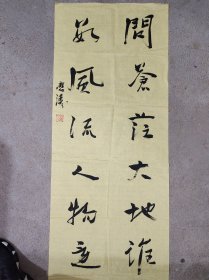 問蒼茫大地誰
數風流人物還